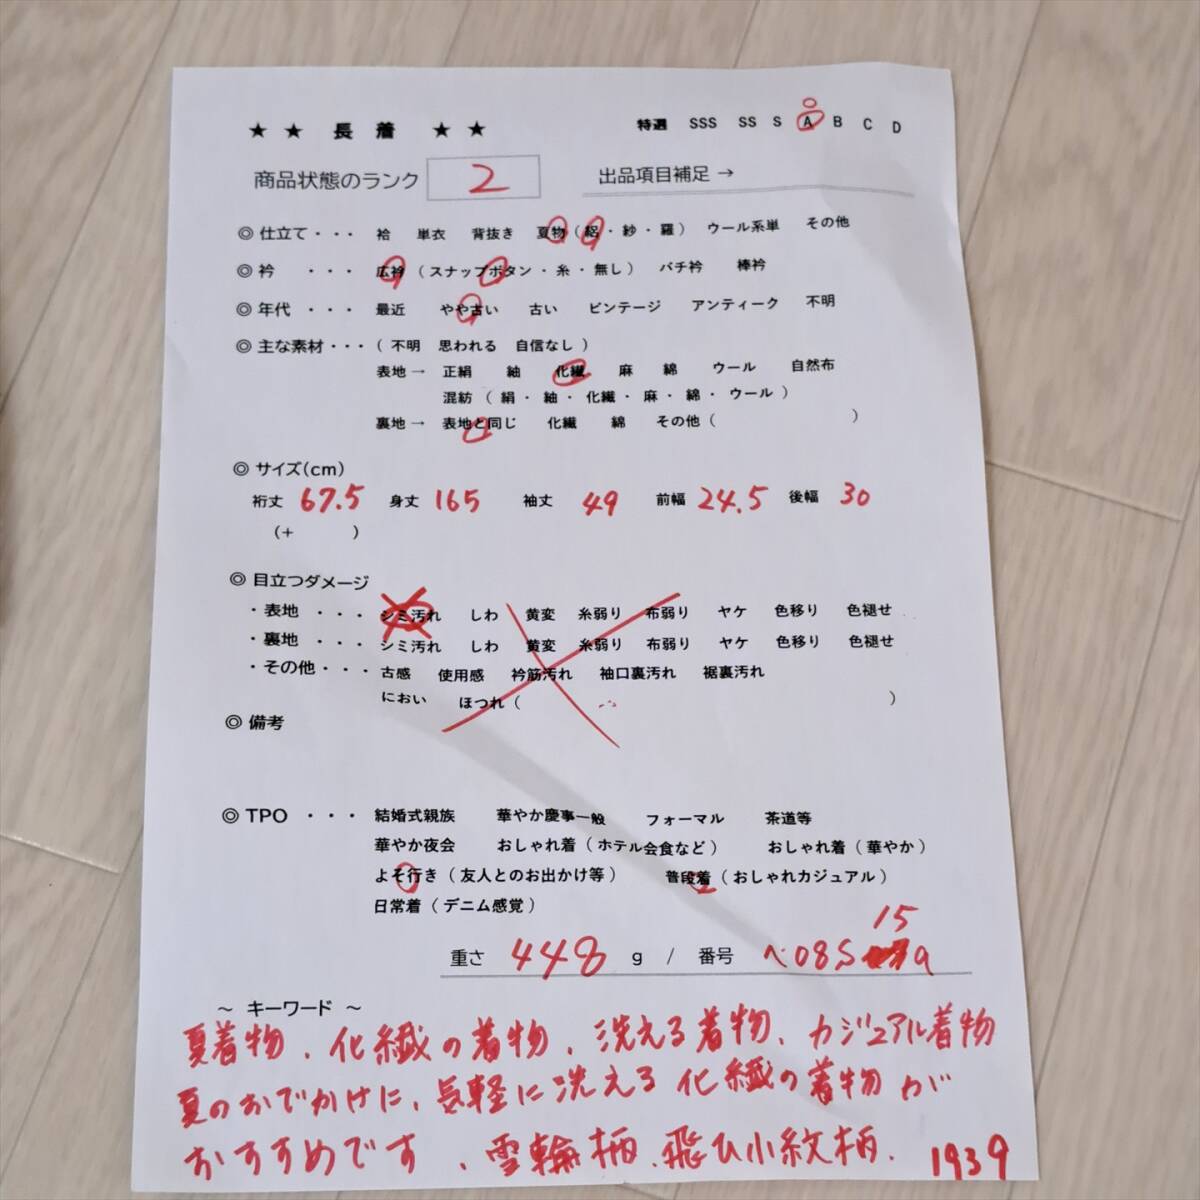 ★ ★ 長 着 ★ ★ 特選 SSS SS S A B C D
商品状態のランク 2 出品項目補足 →
◎ 仕立て・・・ 袷 単衣 背抜き 夏物 ( 絽・紗・羅 ) ウール系単 その他
◎ 衿 ・・・ 広衿 ( スナップボタン・糸・無し ) バチ衿 棒衿
◎ 年代 ・・・ 最近 やや古い 古い ビンテージ アンティーク 不明
◎ 主な素材・・・ ( 不明 思われる 自信なし )
表地→ 正絹 紬 化繊 麻 綿 ウール 自然布
混紡 ( 絹・紬・化繊・麻・綿・ウール )
裏地→ 表地と同じ 化繊 綿 その他 ( )
◎ サイズ(cm)
裄丈 67.5 身丈 165 袖丈 49 前幅 24.5 後幅 30
(+ )
◎ 目立つダメージ
・表地 ・・・ シミ汚れ しわ 黄変 糸弱り 布弱り ヤケ 色移り 色褪せ
・裏地 ・・・ シミ汚れ しわ 黄変 糸弱り 布弱り ヤケ 色移り 色褪せ
・その他・・・ 古感 使用感 衿筋汚れ 袖口裏汚れ 裾裏汚れ
におい ほつれ ( )
◎ 備考
◎ TPO ・・・ 結婚式親族 華やか慶事一般 フォーマル 茶道等
華やか夜会 おしゃれ着 ( ホテル会食など ) おしゃれ着 ( 華やか )
よそ行き ( 友人とのお出かけ等 ) 普段着 ( おしゃれカジュアル )
日常着 ( デニム感覚 )
15
重さ 448 g / 番号 べ08S a
～ キーワード ～
夏着物、化繊の着物、洗える着物、カジュアル着物
夏のおでかけに、気軽に洗える化繊の着物が
おすすめです、雪輪柄、飛び小紋柄、 1939